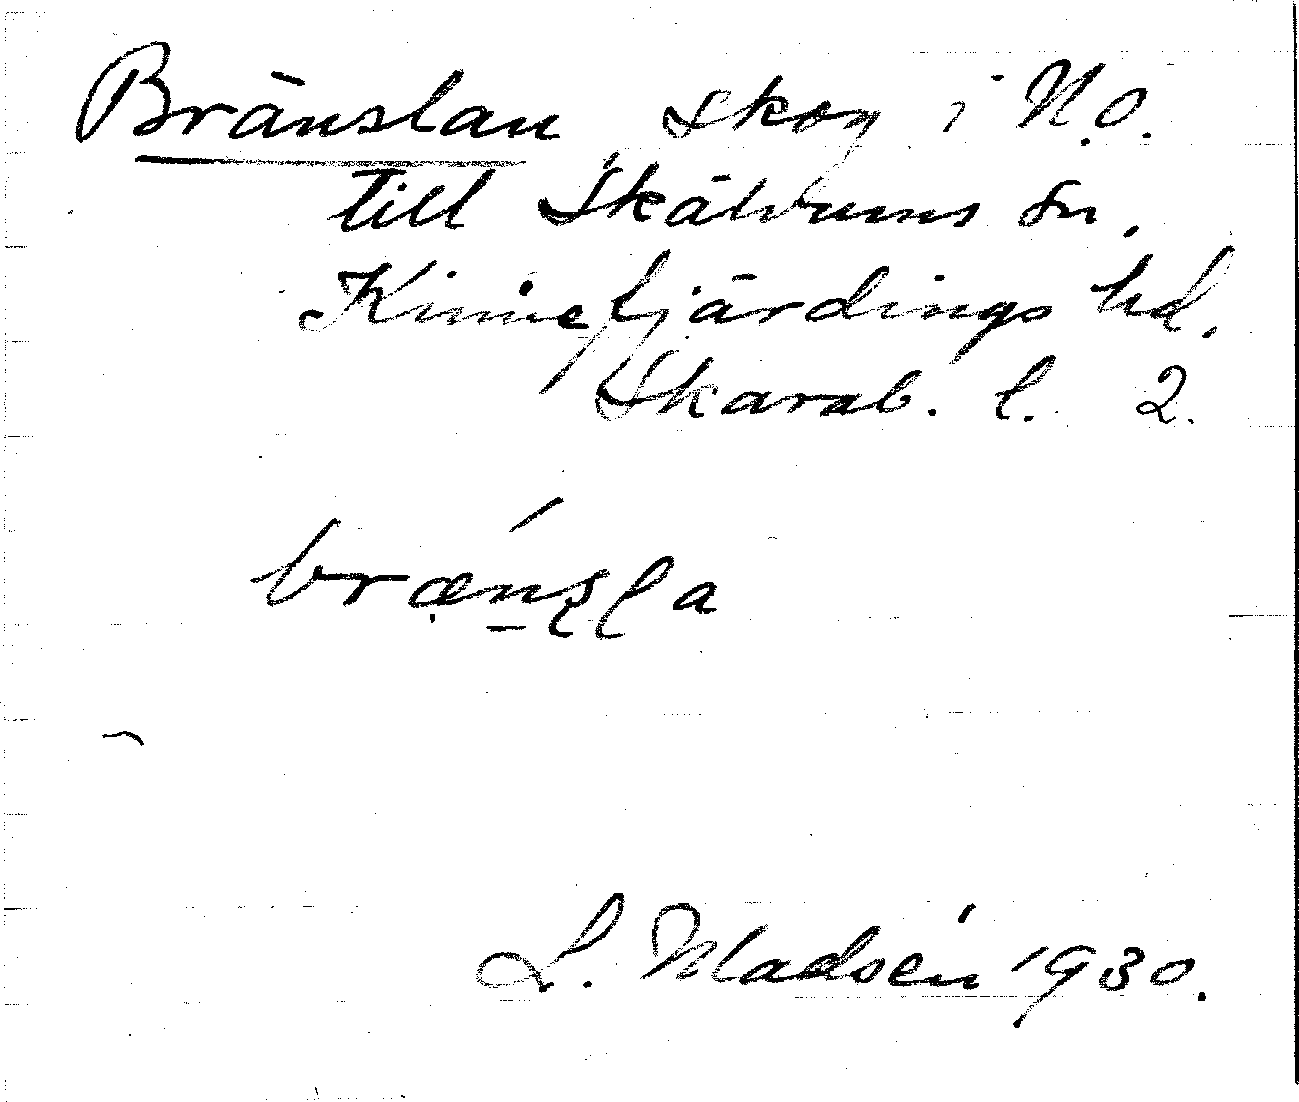 Bränslan skog i N.O.
till Skälvums sn.
Kinnefjärdings hd.
Skarab. l. 2.
brænsla
L. Madsén 1930.